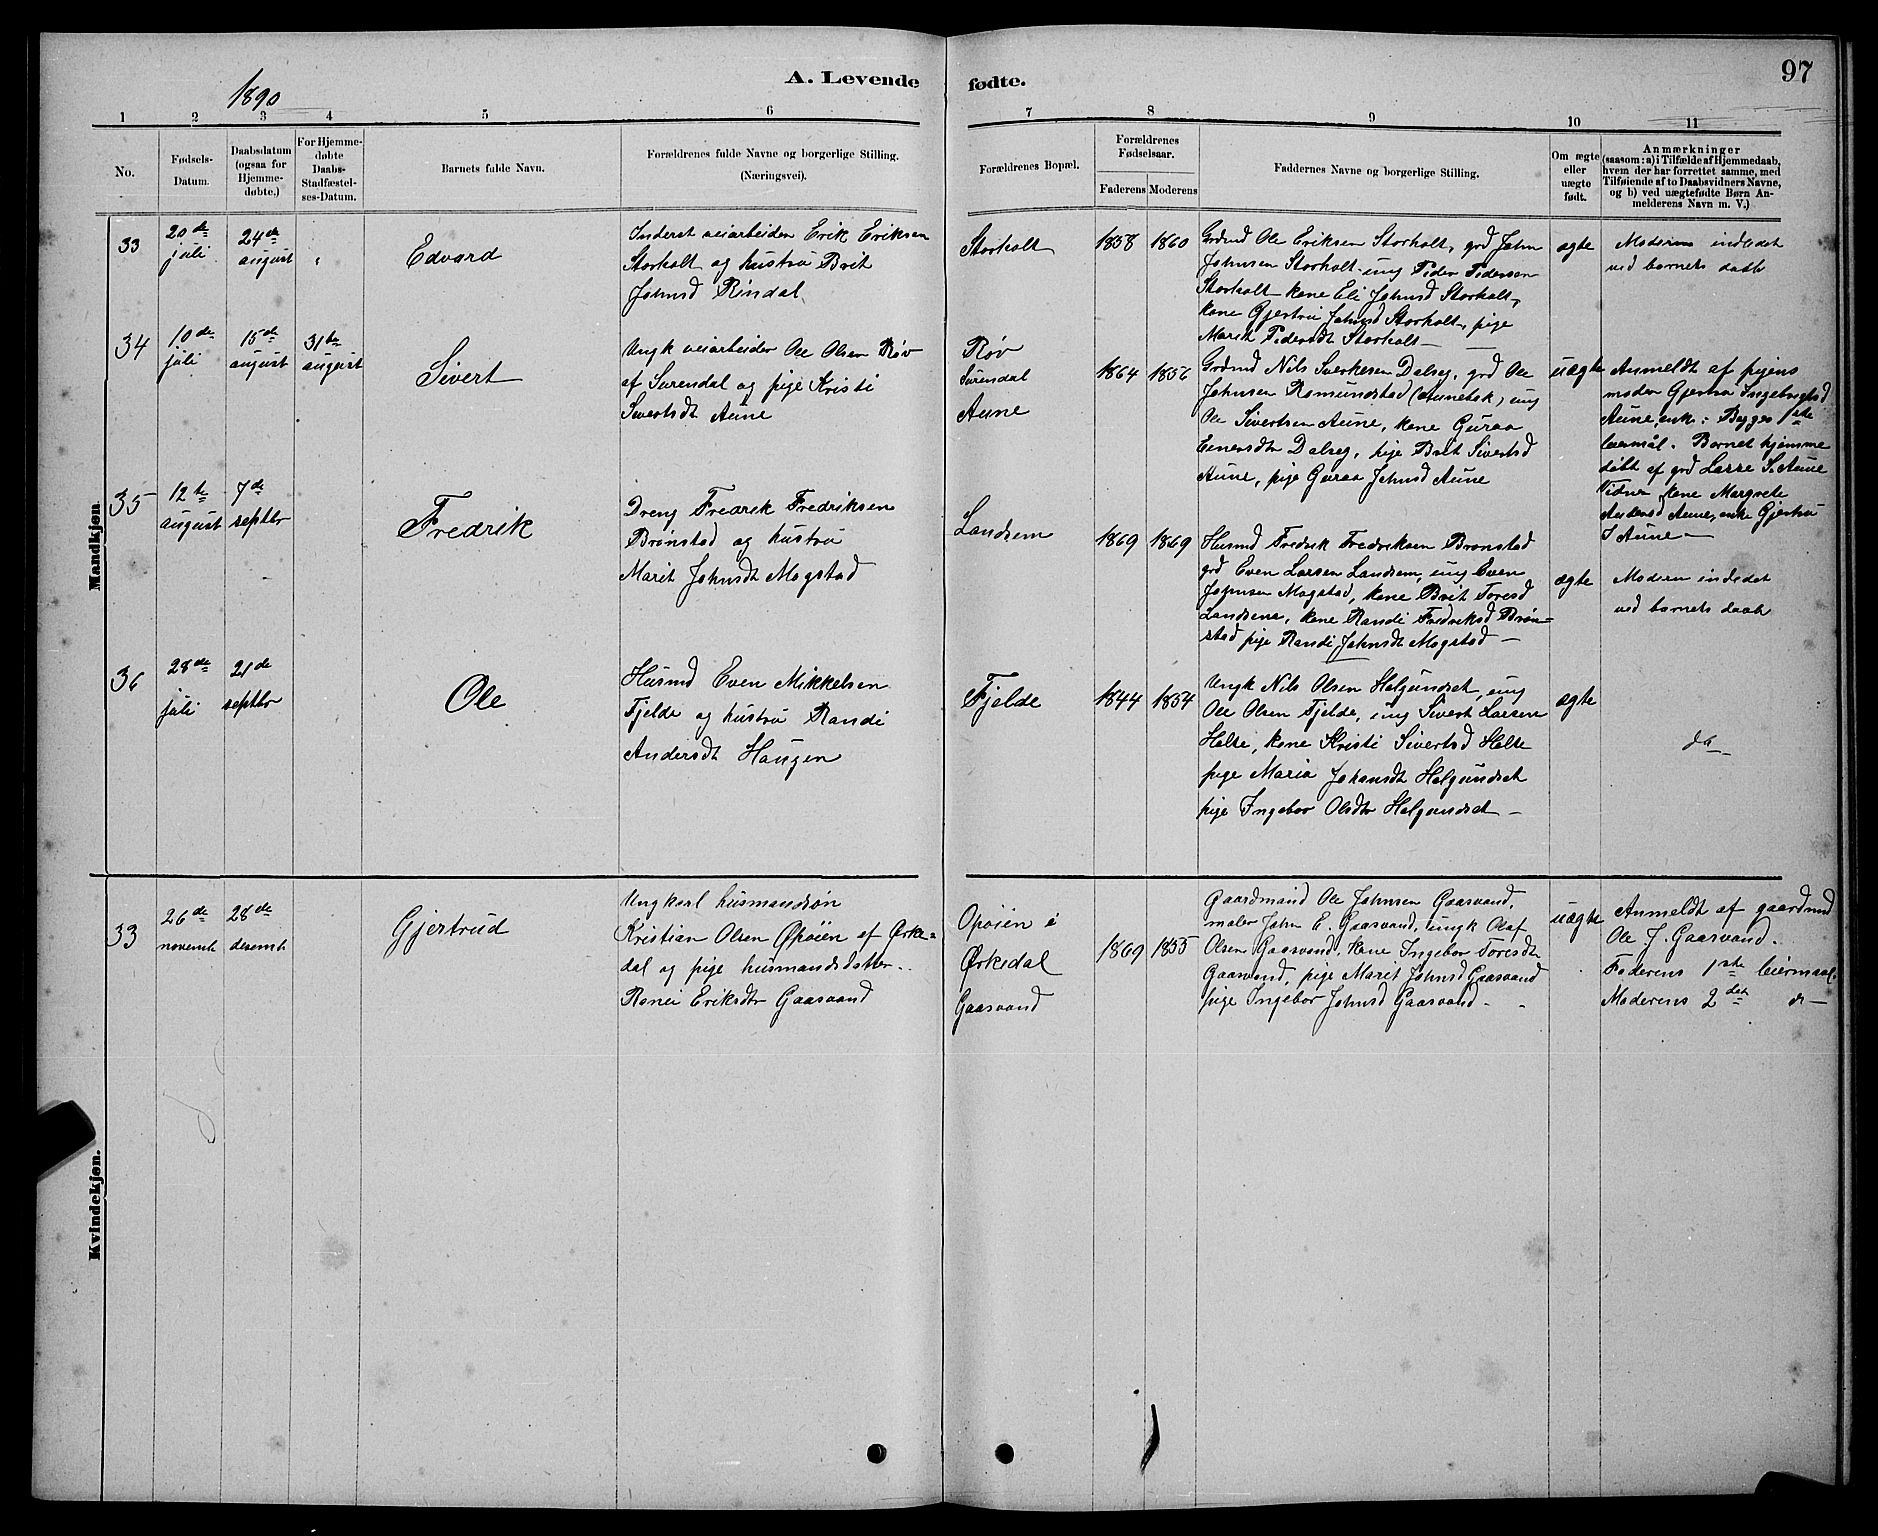 A. Levende
fødte.
97
1890
1
2
3
4
5
6
7
8
9
10
11
No.
Fødsels-
Datum.
Daabsdatum
(ogsaa for
Hjemme-
døbte.)
For Hjemme-
døbte
Daabs-
Stadfæstel-
ses-Datum.
Barnets fulde Navn.
Forældrenes fulde Navne og borgerlige Stilling.
(Næringsvei).
Forældrenes Bopæl.
Forældrenes
Fødselsaar.
Faderens
Moderens
Faddernes Navne og borgerlige Stilling.
Om ægte
eller
uægte
født.
Anmærkninger
(saasom: a) i Tilfælde af Hjemmedaab,
hvem der har forrettet samme, med
Tilføiende af to Daabsvidners Navne,
og b) ved uægtefødte Børn An-
melderens Navn m. V.)
Mandkjøn.
33
20de
juli
24de
august
Edvard
Inderst veiarbeider Erik Eriksen
Storholt og hustru Brit
Johnsd Rindal
Storholt
1858
1860
Grdmd Ole Eriksen Storholt, grd John
Johnsen Storholt, ung Peder Pedersen
Storholt kone Eli Johnsd Storholt,
kone Gjertru Johnsd Storholt, pige
Marit Pedersdt Storholt
ægte
Moderen indledet
ved barnets daab
34
10de
juli
15de
august
31te
august
Sivert
Ungk veiarbeider Ole Olsen Røv
af Surendal og pige Kristi
Sivertsdt Aune
Røv
Surendal
Aune
1864
1856
Grdmd Nils Sverkesen Dalseg, grd Ole
Johnsen Romundstad (Aunebak) ung
Ole Sivertsen Aune, kone Guraa
Einersdtr Dalseg, pige Brit Sivertsd
Aune, pige Guraa Johnsd Aune
uægte
Anmeldt af pigens
moder Gjertru Ingebrigtsd
Aune, enke: Begges 1ste
leiermål. Barnet hjemme
døbt af grd Lasse S. Aune
Vidner kone Margrete
Andersd Aune, enke Gjertru
I Aune
35
12te
august
7de
septbr
Fredrik
Dreng Fredrik Fredriksen
Brønstad og hustru
Marit Johnsdt Mogstad
Landsem
1869
1869
Husmd Fredrik Fredriksen Brønstad
grd Even Larsen Landsem, ung Even
Johnsen Mogstad, kone Brit Toresd
Landsem, kone Randi Fredriksd Brøn-
stad pige Randi Johnsdt Mogstad
ægte
Moderen indledet
ved barnets daab
36
28de
juli
21de
septbr
Ole
Husmd Even Mikkelsen
Fjelde og hustru Randi
Andersdt Haugen
Fjelde
1844
1854
Ungk Nils Olsen Helgundset, ung
Ole Olsen Fjelde, ung Sivert Larsen
Holte, kone Kristi Sivertsd Holte
pige Maria Johansdt Helgundset
pige Ingebor Olsdtr Helgundset
ægte
do
Kvindekjøn.
33
26de
novemb
28de
desemb
Gjertrud
Ungkarl husmandsøn
Kristian Olsen Øpøien af Ørke-
dal og pige husmandsdatter
Ranei Eriksdtr Gaasvand
Opøien i
Ørkedal
Gaasvand
1869
1855
Gaardmand Ole Johnsen Gaasvand,
maler John E. Gaasvand, ungk Olaf
Olsen Gaasvand, kone Ingebor Toresdt
Gaasvand, pige Marit Johnsd Gaasvand
pige Ingebor Johnsd Gaasvand
uægte
Anmeldt af gaardmd
Ole J. Gaasvand.
Faderens 1ste leiermaal
Moderens 2det do